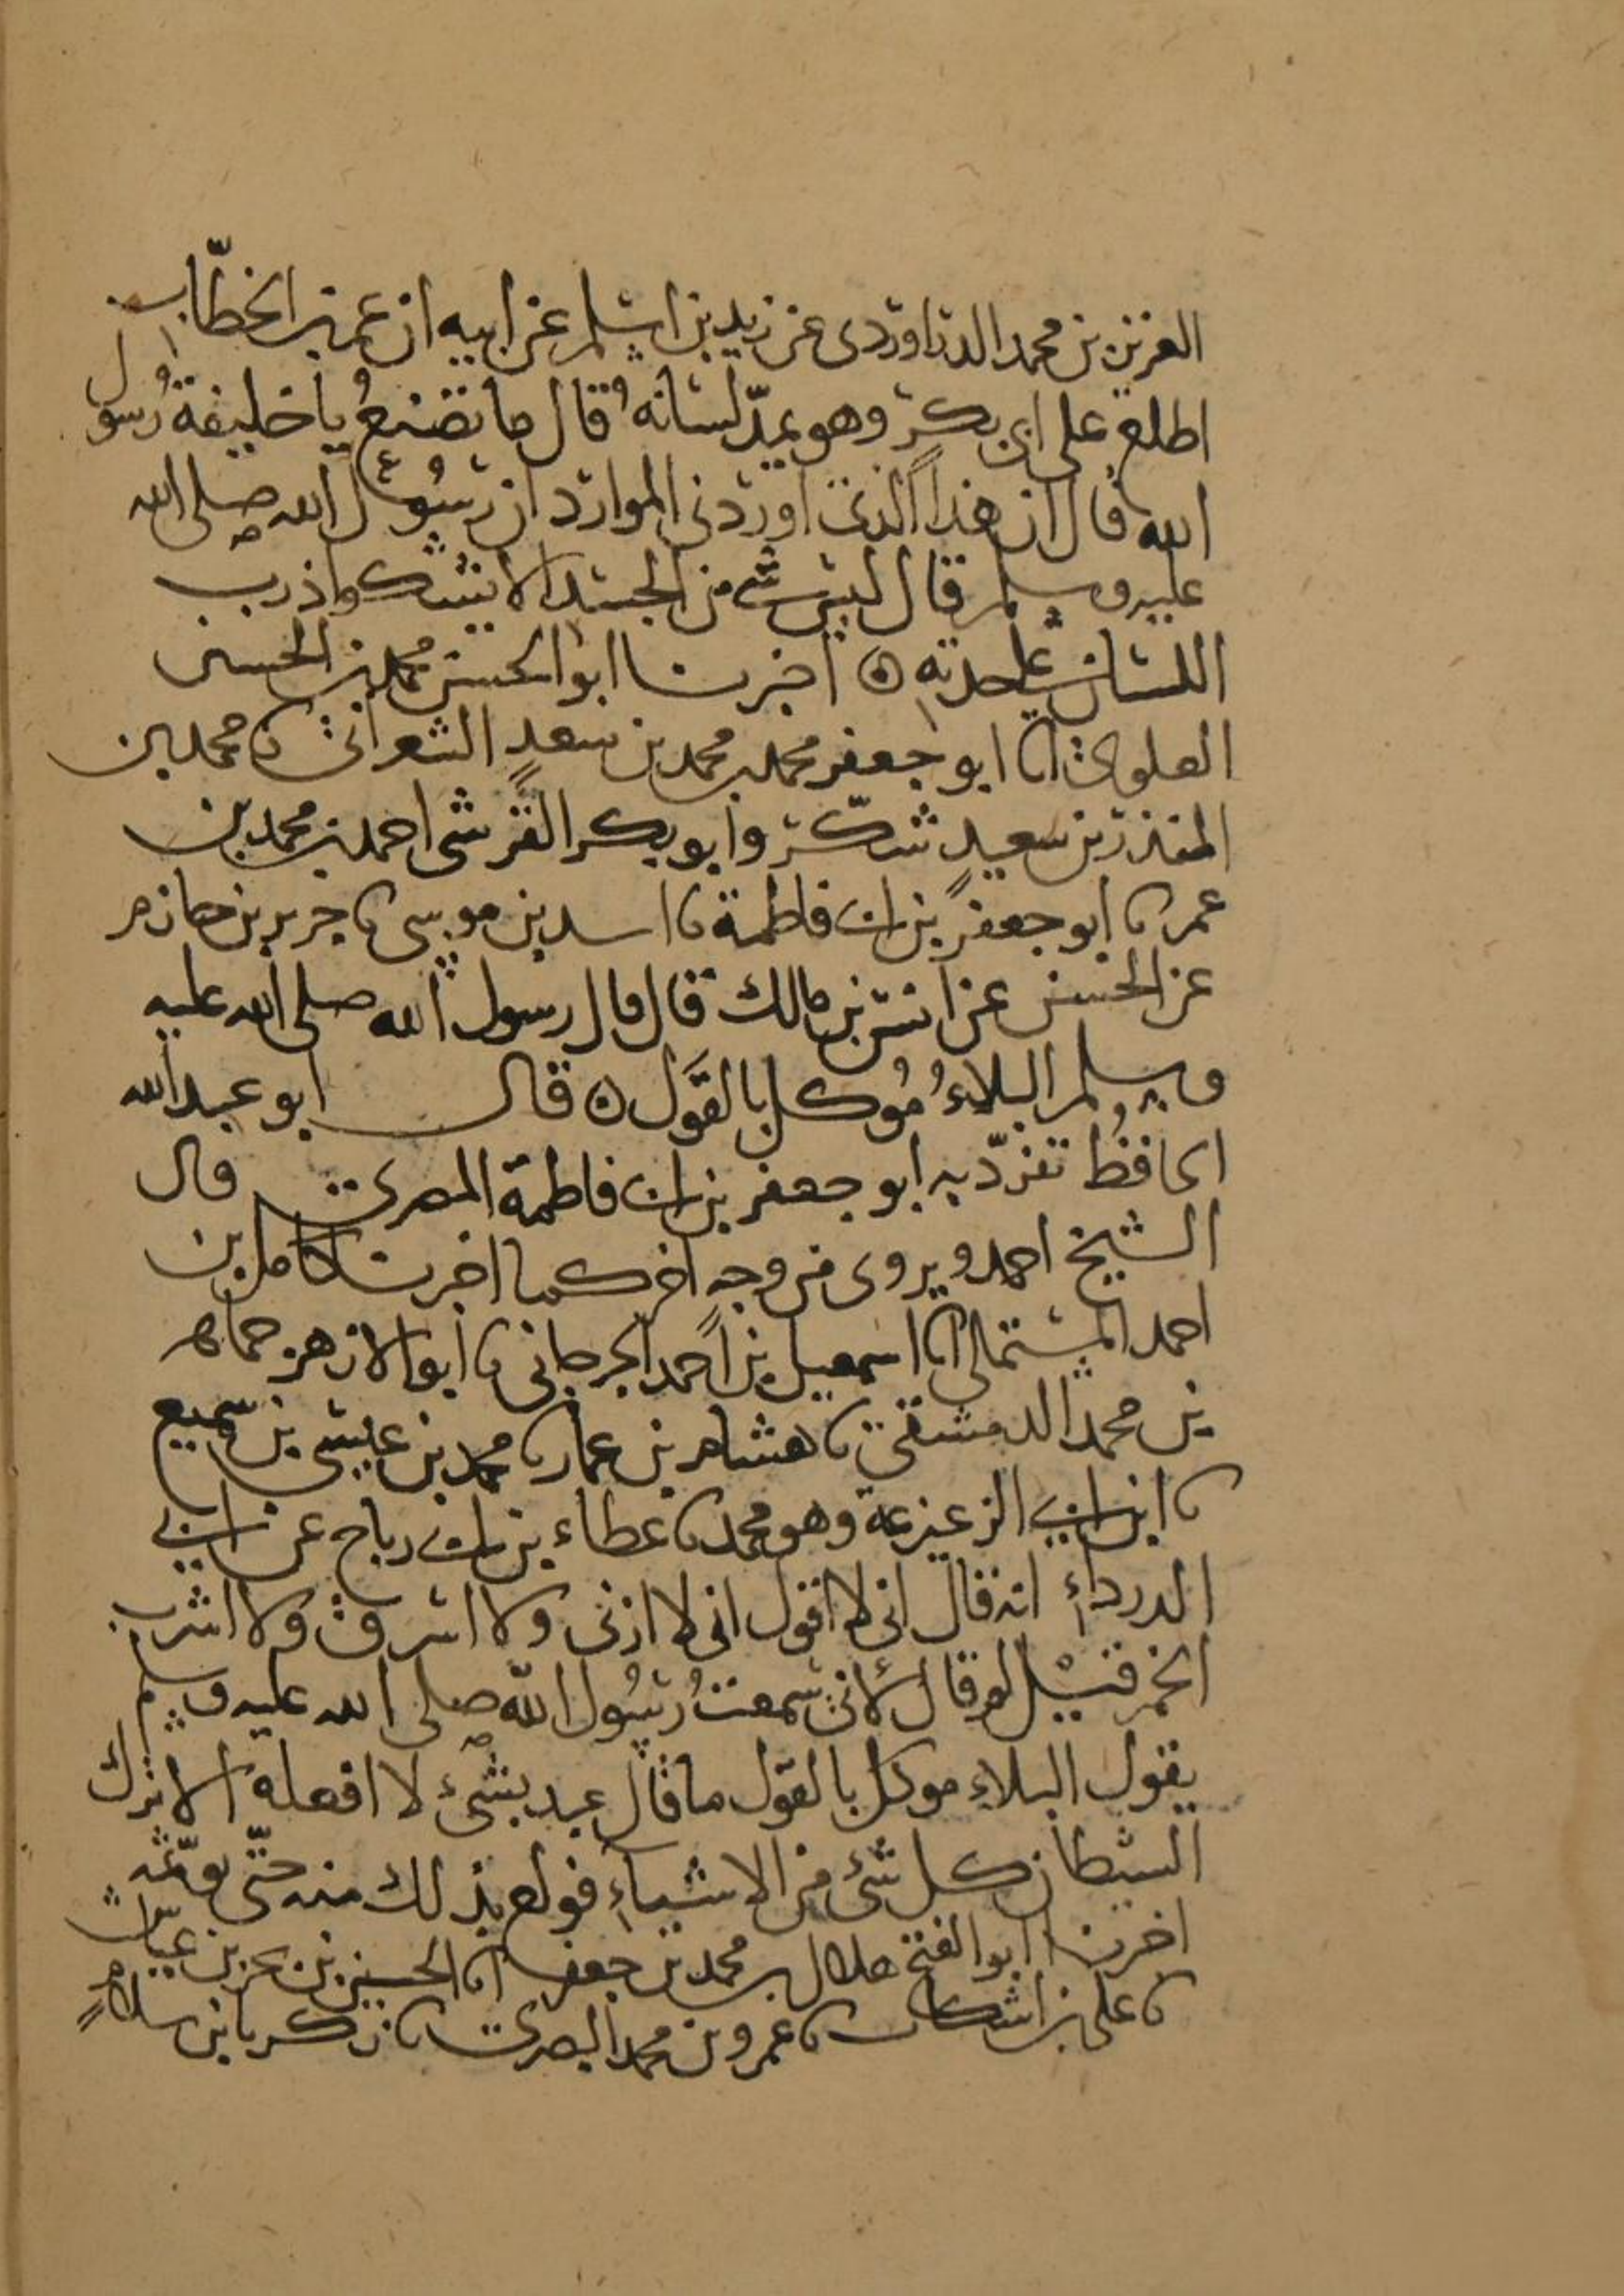 العزيز بن محمد الدراوردى عن زيد بن اسلم عن ابيه ان عمر بن الخطّاب
اطلع على ابى بكر وهو يمدّ لسانه قال ما تصنعُ يا خليفة رسول
الله قال ان هذا الذى اوردنى الموارد ان رسول الله صلى الله
عليه وسلم قال ليس شىء من الجسد الا يشكوا ذرب
اللسان على حدته ۞ اخبرنا ابو الحسن محمد بن الحسين
العلوى انا ابو جعفر محمد بن محمد بن سعدٍ الشعرانى نا محمد بن
المنذر بن سعيدٍ شكّر وابو بكر القرشى احمد بن محمد بن
عمر نا ابو جعفر بن ابى فاطمة نا اسد بن موسى نا جرير بن حازم
عن الحسن عن انس بن مالك قال قال رسول الله صلى الله عليه
وسلم البلاءُ مُوكل بالقَول ۞ قال ابو عبد الله
الحافظُ تفرّد به ابو جعفر بن ابى فاطمة المصرى قال
الشيخ احمد ويروى من وجه اخر كما اخبرنا كامل بن
احمد المستملى انا اسمعيل بن احمد الجرجانى نا ابو الازهر جماهر
بن محمد الدمشقى نا هشام بن عمار نا محمد بن عيسى بن سميع
نا ابن ابى الزعيزعة وهو محمد نا عطاء بن ابى رباح عن ابى
الدرداء انه قال انى لا اقول انى لا ازنى ولا اسرق ولا اشرب
الخمر قيل لم قال لأنى سمعتُ رسُول الله صلى الله عليه وسلم
يقول البلاء موكل بالقول ما قال عبد بشىء لا افعله الا ترك
الشيطان كل شىء من الاشياء فولع بذلك منه حتّى يؤثمه
اخبرنا ابو الفتح هلال بن محمد بن جعفر انا الحسين بن يحيى بن عياش
نا على بن اشكاب نا عمرو بن محمد البصرى نا زكريا بن سلام